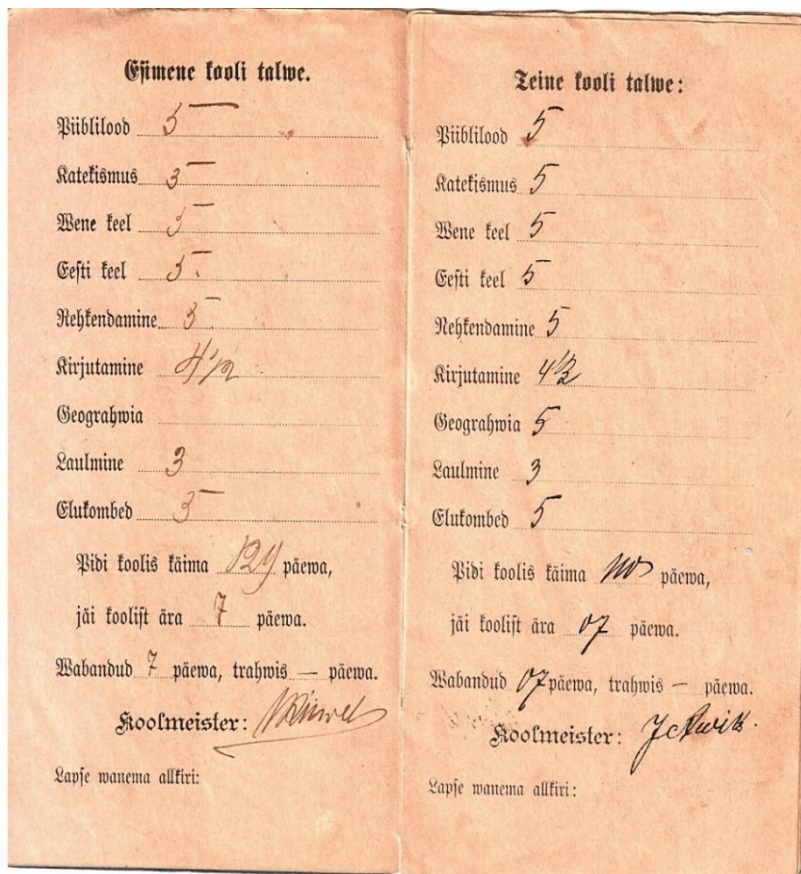 Esimene kooli talwe.
Piiblilood 5
Katekismus 5
Wene keel 5
Eesti keel 5.
Rehkendamine 5
Kirjutamine 4 1/2
Geograhwia
Laulmine 3
Elukombed 5
Pidi koolis käima 129 päewa,
jäi koolist ära 7 päewa.
Wabandud 7 päewa, trahwis — päewa.
Koolmeister:
Lapse wanema allkiri:
Teine kooli talwe:
Piiblilood 5
Katekismus 5
Wene keel 5
Eesti keel 5
Rehkendamine 5
Kirjutamine 4 1/2
Geograhwia 5
Laulmine 3
Elukombed 5
Pidi koolis käima päewa,
jäi koolist ära 07 päewa.
Wabandud 07 päewa, trahwis — päewa.
Koolmeister:
Lapse wanema allkiri: